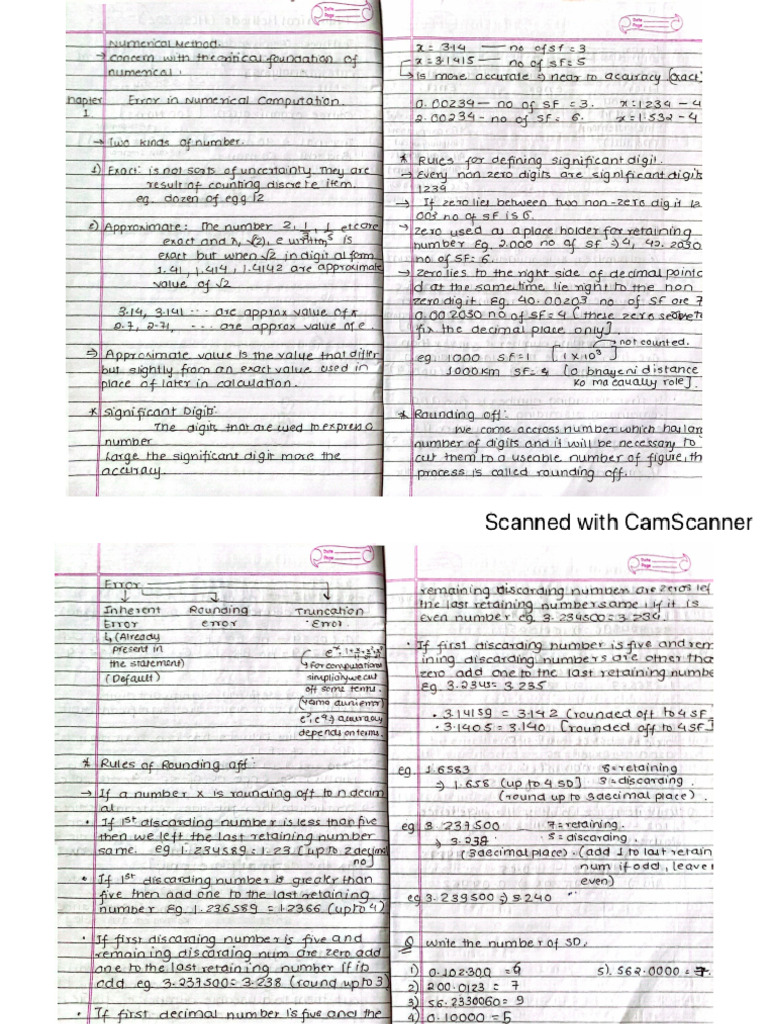 Numerical Method.
→ concern with theoritical foundation of
numerical.
Chapter 1 Error in Numerical Computation.
→ Two kinds of number.
1) Exact: is not sorts of uncertainty they are
result of counting discrete item.
eg. dozen of egg 12
2) Approximate: The number 2, 1/3, 1/5 etc are
exact and π, √(2), e written is
exact but when √2 in digital form
1.41, 1.414, 1.4142 are approximate
value of √2
3.14, 3.141 ... are approx value of π
2.7, 2.71, ... are approx value of e.
⇒ Approximate value is the value that differ
but slightly from an exact value used in
place of later in calculation.
* Significant Digit:
The digits that are used to express a
number
Large the significant digit more the
accuracy.
x = 3.14 — no of sf = 3
x = 3.1415 — no of sf = 5
→ is more accurate ⇒ near to acuracy (exact)
0.00234 — no of SF = 3. x = 1234 - 4
2.00234 — no of SF = 6. x = 1.532 - 4
* Rules for defining significant digit.
→ Every non zero digits are significant digits
1239
→ If zero lies between two non-zero digit 12
003 no of SF is 5.
→ zero used as a place holder for retaining
number Eg. 2.000 no of sf ⇒ 4, 42.2030
no of SF = 6.
→ zero lies to the right side of decimal point
d at the same time lie right to the non
zero digit. Eg. 40.00203 no of SF are 7
0.002030 no of SF = 4 (these zero
fix the decimal place only].
→ not counted.
eg. 1000 SF = 1 [1 x 10³]
1000 km SF = 4 [0 bhayeni distance
ko ma equally role]
* Rounding off:
We come accross number which has lar
number of digits and it will be necessary to
cut them to a useable number of figure, th
process is called rounding off.
Scanned with CamScanner
Error
Inherent Rounding Truncation
Error error Error
↳ (Already
present in
the statement)
(Default)
for computational
simplicity we cut
off some terms.
accuracy
depends on terms.
* Rules of Rounding off:
→ If a number x is rounding off to n decim
al
• If 1st discarding number is less than five
then we left the last retaining number
same. eg. 1.234589 = 1.23 (up to 2 decimal
no]
• If 1st discarding number is greater than
five then add one to the last retaining
number Eg. 1.236589 = 1.2366 (up to 4)
• If first discarding number is five and
remaining discarding num are zero add
one to the last retaining number if it is
odd eg. 3.237500 = 3.238 (round up to 3)
• If first decimal number is five and the
remaining discarding number are zeros lef
the last retaining number same, if it is
even number eg. 3.234500 = 3.234.
• If first discarding number is five and rem
ining discarding numbers are other tha
zero add one to the last retaining numbe
Eg. 3.2345 = 3.235
• 3.14159 = 3.142 (rounded off to 4 SF)
• 3.1405 = 3.140 (rounded off to 4 SF]
eg. 1.6583 8 = retaining
⇒ 1.658 (up to 4 SD) 3 = discarding.
(round up to 3 decimal place).
eg 3.237500 7 = retaining.
→ 3.238 5 = discarding.
(3 decimal place). (add 1 to last retain
num if odd, leave
even)
eg 3.239500 ⇒ 3.240
Q Write the number of SD.
1) 0.102300 = 6 5). 562.0000 = 7.
2) 200.0123 = 7
3) 56.2330060 = 9
4) 0.10000 = 5